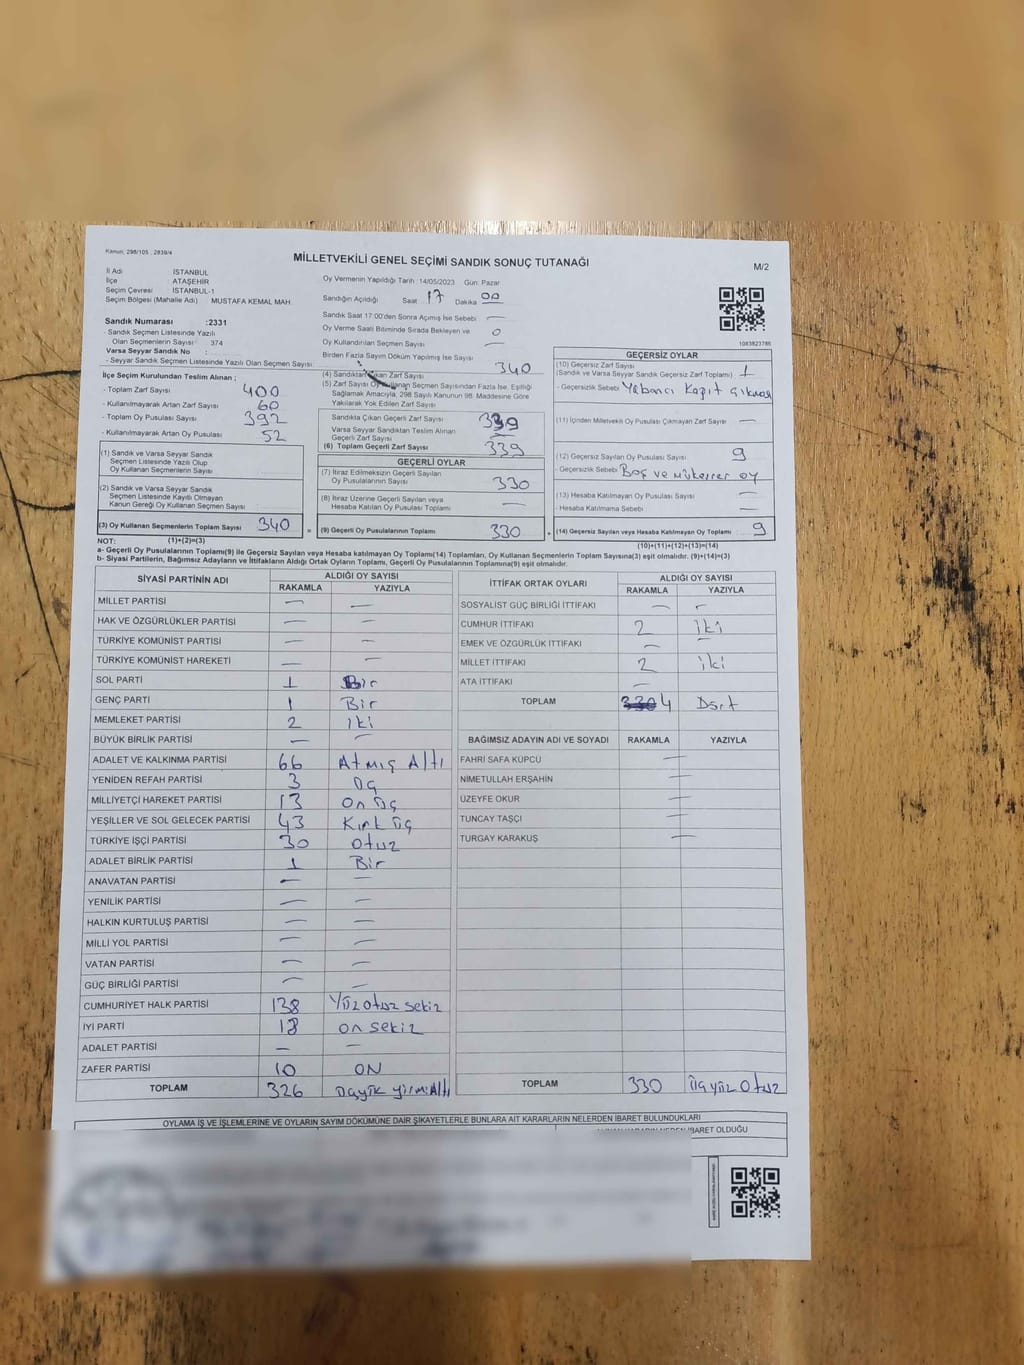 Kanun; 298/105 ; 2839/4
MİLLETVEKİLİ GENEL SEÇİMİ SANDIK SONUÇ TUTANAĞI
M/2
İl Adı : İSTANBUL
İlçe : ATAŞEHİR
Seçim Çevresi : İSTANBUL-1
Seçim Bölgesi (Mahalle Adı) : MUSTAFA KEMAL MAH.
Oy Vermenin Yapıldığı Tarih : 14/05/2023 Gün: Pazar
Sandığın Açıldığı Saat 17 Dakika 00
Sandık Saat 17:00'den Sonra Açımış İse Sebebi —
Oy Verme Saati Bitiminde Sırada Bekleyen ve 0
Oy Kullandırılan Seçmen Sayısı —
Birden Fazla Sayım Döküm Yapılmış İse Sayısı
1083823786
Sandık Numarası :2331
- Sandık Seçmen Listesinde Yazılı
Olan Seçmenlerin Sayısı : 374
Varsa Seyyar Sandık No :
- Seyyar Sandık Seçmen Listesinde Yazılı Olan Seçmen Sayısı :
İlçe Seçim Kurulundan Teslim Alınan ;
- Toplam Zarf Sayısı 400
- Kullanılmayarak Artan Zarf Sayısı 60
- Toplam Oy Pusulası Sayısı 392
- Kullanılmayarak Artan Oy Pusulası 52
(1) Sandık ve Varsa Seyyar Sandık
Seçmen Listesinde Yazılı Olup
Oy Kullanan Seçmenlerin Sayısı
(2) Sandık ve Varsa Seyyar Sandık
Seçmen Listesinde Kayıtlı Olmayan
Kanun Gereği Oy Kullanan Seçmen Sayısı
(3) Oy Kullanan Seçmenlerin Toplam Sayısı 340
(4) Sandıktan Çıkan Zarf Sayısı 340
(5) Zarf Sayısı Oy Kullanan Seçmen Sayısından Fazla İse, Eşitliği
Sağlamak Amacıyla, 298 Sayılı Kanunun 98. Maddesine Göre
Yakılarak Yok Edilen Zarf Sayısı
Sandıkta Çıkan Geçerli Zarf Sayısı 339
Varsa Seyyar Sandıktan Teslim Alınan
Geçerli Zarf Sayısı —
(6) Toplam Geçerli Zarf Sayısı 339
GEÇERLİ OYLAR
(7) İtiraz Edilmeksizin Geçerli Sayılan
Oy Pusulalarının Sayısı 330
(8) İtiraz Üzerine Geçerli Sayılan veya
Hesaba Katılan Oy Pusulası Toplamı —
= (9) Geçerli Oy Pusulalarının Toplamı 330
GEÇERSİZ OYLAR
(10) Geçersiz Zarf Sayısı
(Sandık ve Varsa Seyyar Sandık Geçersiz Zarf Toplamı) 1
- Geçersizlik Sebebi Yabancı Kağıt çıkması
(11) İçinden Milletvekili Oy Pusulası Çıkmayan Zarf Sayısı —
(12) Geçersiz Sayılan Oy Pusulası Sayısı 9
- Geçersizlik Sebebi Boş ve mükerrer oy
(13) Hesaba Katılmayan Oy Pusulası Sayısı —
- Hesaba Katılmama Sebebi —
+ (14) Geçersiz Sayılan veya Hesaba Katılmayan Oy Toplamı 9
NOT: (1)+(2)=(3)
(10)+(11)+(12)+(13)=(14)
a- Geçerli Oy Pusulalarının Toplamı(9) ile Geçersiz Sayılan veya Hesaba katılmayan Oy Toplamı(14) Toplamları, Oy Kullanan Seçmenlerin Toplam Sayısına(3) eşit olmalıdır. (9)+(14)=(3)
b- Siyasi Partilerin, Bağımsız Adayların ve İttifakların Aldığı Ortak Oyların Toplamı, Geçerli Oy Pusulalarının Toplamına(9) eşit olmalıdır.
SİYASİ PARTİNİN ADI ALDIĞI OY SAYISI
RAKAMLA YAZIYLA
MİLLET PARTİSİ — —
HAK VE ÖZGÜRLÜKLER PARTİSİ — —
TÜRKİYE KOMÜNİST PARTİSİ — —
TÜRKİYE KOMÜNİST HAREKETİ — —
SOL PARTİ 1 Bir
GENÇ PARTİ 1 Bir
MEMLEKET PARTİSİ 2 iki
BÜYÜK BİRLİK PARTİSİ — —
ADALET VE KALKINMA PARTİSİ 66 Atmış Altı
YENİDEN REFAH PARTİSİ 3 üç
MİLLİYETÇİ HAREKET PARTİSİ 13 on üç
YEŞİLLER VE SOL GELECEK PARTİSİ 43 Kırk üç
TÜRKİYE İŞÇİ PARTİSİ 30 otuz
ADALET BİRLİK PARTİSİ 1 Bir
ANAVATAN PARTİSİ — —
YENİLİK PARTİSİ — —
HALKIN KURTULUŞ PARTİSİ — —
MİLLİ YOL PARTİSİ — —
VATAN PARTİSİ — —
GÜÇ BİRLİĞİ PARTİSİ — —
CUMHURİYET HALK PARTİSİ 138 Yüz otuz sekiz
İYİ PARTİ 18 on sekiz
ADALET PARTİSİ — —
ZAFER PARTİSİ 10 ON
TOPLAM 326 üçyüz yirmi Altı
İTTİFAK ORTAK OYLARI ALDIĞI OY SAYISI
RAKAMLA YAZIYLA
SOSYALİST GÜÇ BİRLİĞİ İTTİFAKI — —
CUMHUR İTTİFAKI 2 iki
EMEK VE ÖZGÜRLÜK İTTİFAKI — —
MİLLET İTTİFAKI 2 iki
ATA İTTİFAKI —
TOPLAM 330 4 Dört
BAĞIMSIZ ADAYIN ADI VE SOYADI RAKAMLA YAZIYLA
FAHRİ SAFA KÜPCÜ —
NİMETULLAH ERŞAHİN —
ÜZEYFE OKUR —
TUNCAY TAŞÇI —
TURGAY KARAKUŞ —
TOPLAM 330 üçyüz otuz
OYLAMA İŞ VE İŞLEMLERİNE VE OYLARIN SAYIM DÖKÜMÜNE DAİR ŞİKAYETLERLE BUNLARA AİT KARARLARIN NELERDEN İBARET BULUNDUKLARI
İBARET OLDUĞU